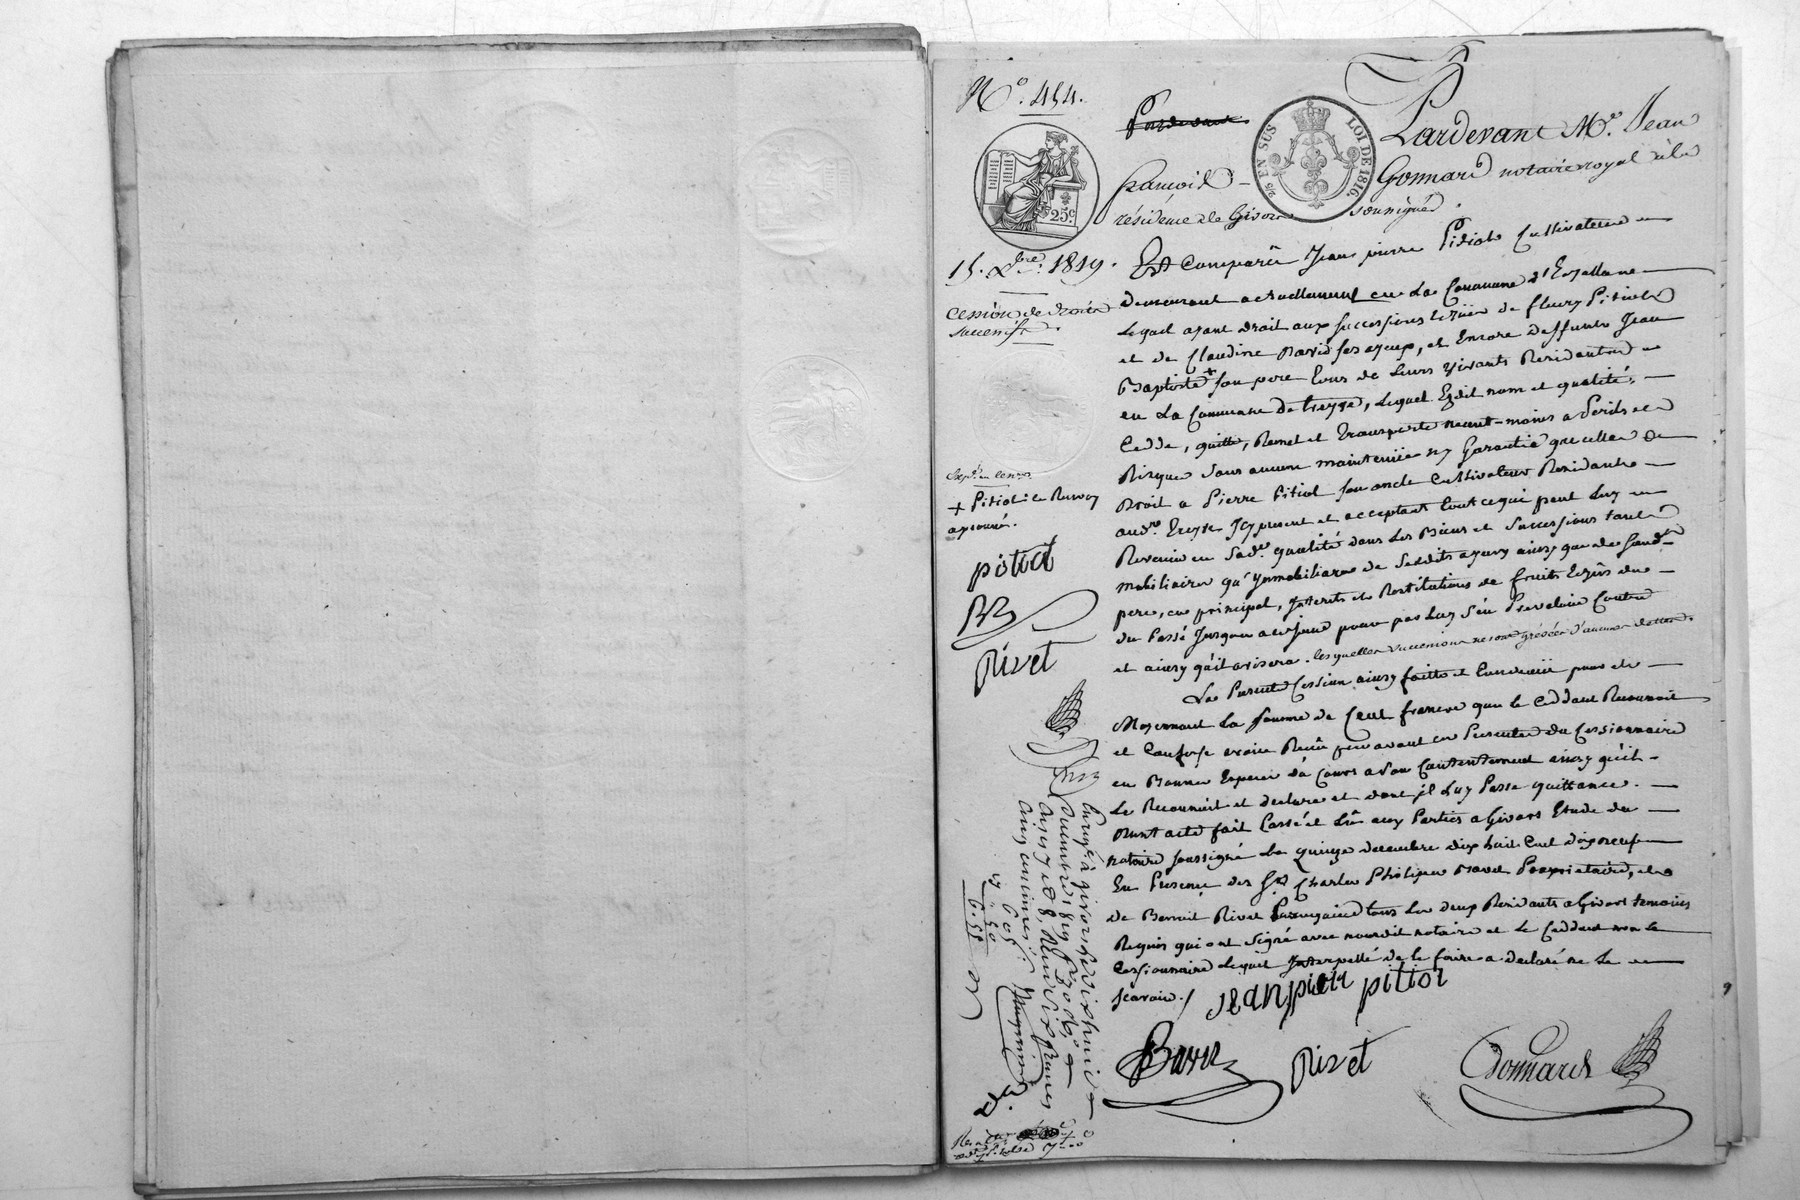 N.° 454.
Pardevant
Pardevant M.e Jean
françois Gonnard notaire royal à la
résidence de Givors soussigné.
2/5 EN SUS LOI DE 1816.
25c.
15. Xbre. 1819.
Cession de droits
successifs.
Est comparû Jean pierre Pitiot Cultivateur
demeurant actuellement en La Commune d'Echallane
Lequel ayant droit aux successions de fleury Pitiot
et de Claudine ses ayeux, et Encore deffunt Jean
Baptiste + son pere tous de Leurs vivants Residents
en La Commune de treyve, Lequel Esdit nom et qualité,
Cedde, quitte, Remet et Transporte neant-moins a Perils et
Risques sans aucune maintenue ny Garantie que celle de
Droit a Pierre Pitiot son oncle Cultivateur Residant
aud. treyve Icy present et acceptant tout ce qui peut Luy
Revenir en Sad. qualité dans Les Biens et Successions tant
mobiliaires qu'Immobiliaires de Sesdits ayeux ainsy que de Sond.
pere, en principal, Interets et Restitutions de fruits
du Passé Jusques a ce jour pour par Luy s'en Prevaloir Contre
et ainsy qu'il avisera. lesquelles successions ne sont grévées d'aucunes dettes.
La Presente Cession ainsy faitte et Convenüe pour et
Moyennant La somme de Cent francs que le Ceddant Reconnoit
et Confesse avoir Reçû avant ces Presentes du Cessionnaire
en Bonnes Especes de Cours a son Contentement ainsy qu'il
Le Reconnoit et declare et dont il Luy Passe quittance.
Dont acte fait Passé et Lû aux Parties a Givors Etude du
notaire soussigné Le quinze decembre dix huit Cent dix neuf
En Presence des Srs. Charles Philipe Proprietaire, et
de Benoit Rivet tous Les deux Residants a Givors temoins
Requis qui ont Signé avec nousdit notaire et le Ceddant non le
Cessionnaire Lequel Interpellé de le faire a declaré ne Le
scavoir./.
+ Pitiot
aprouvé.
pitiot
Rivet
jean piere pitiot
Rivet
Gonnard
6.55